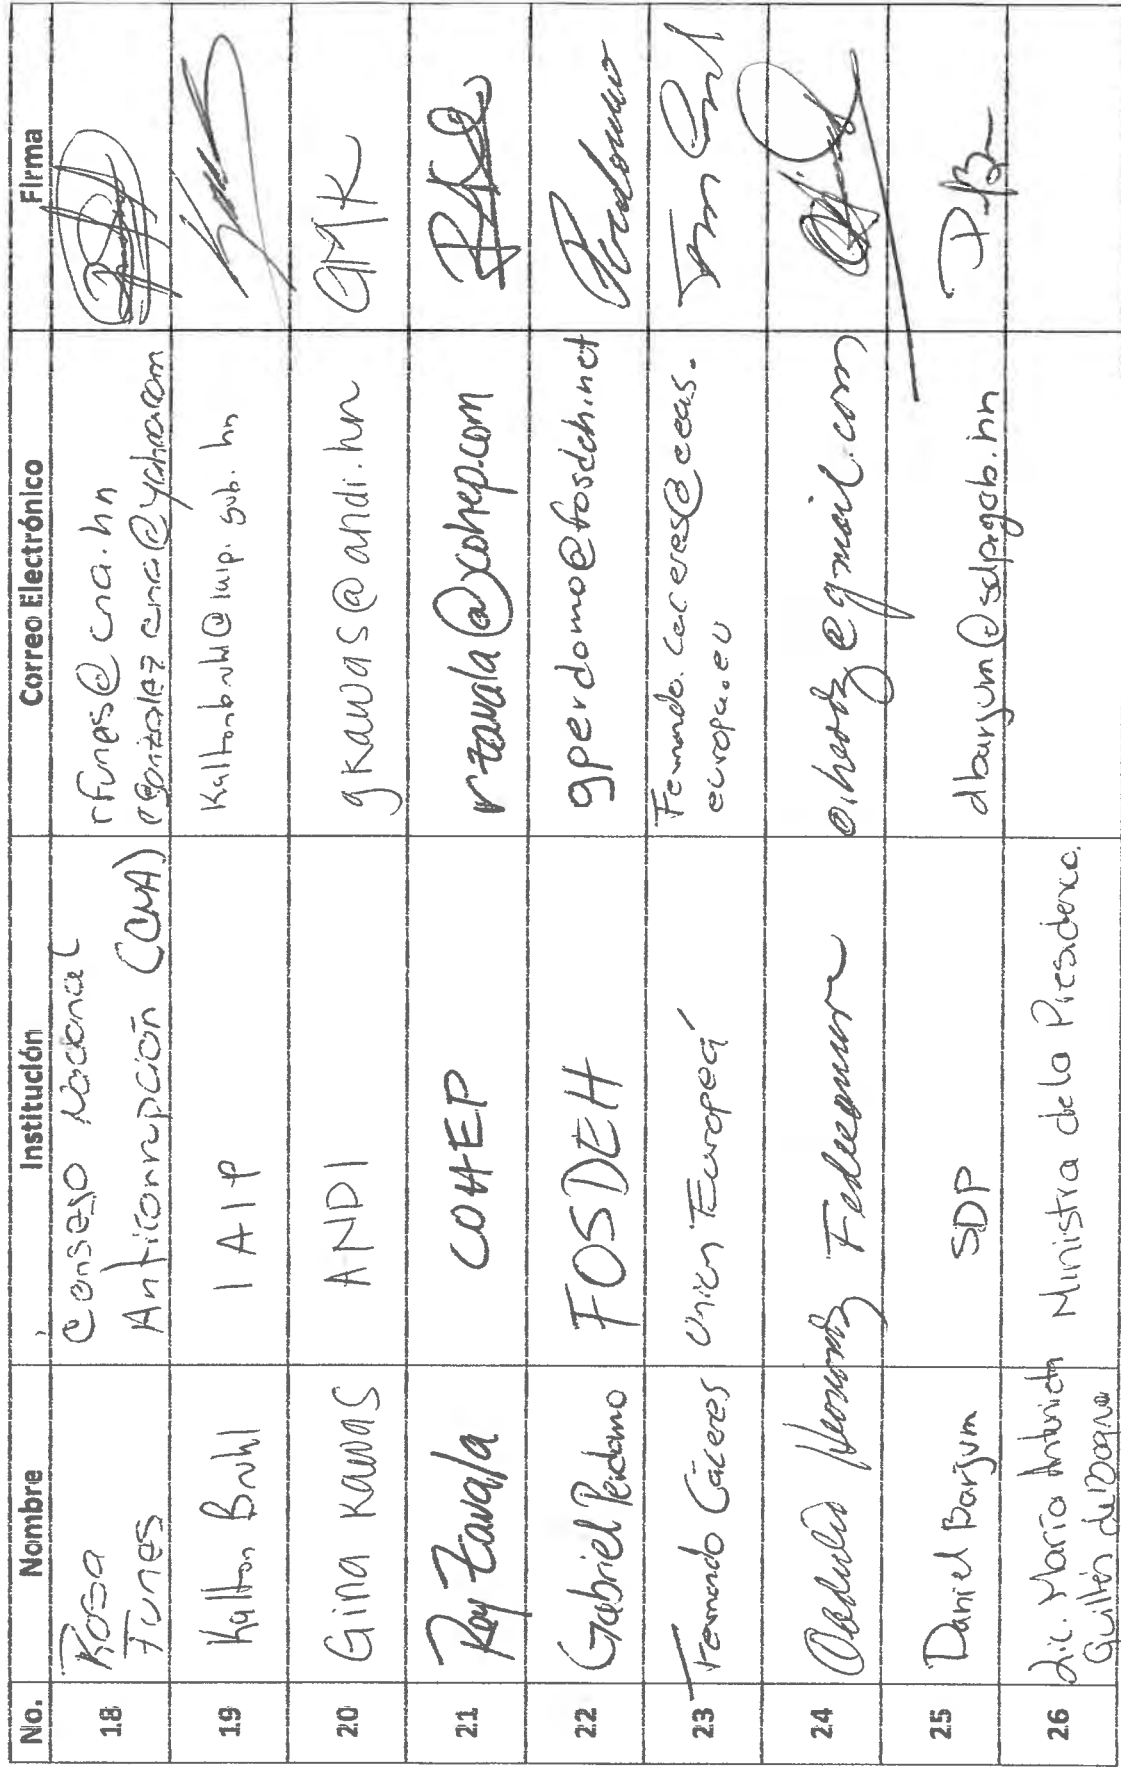 No. Nombre Institución Correo Electrónico Firma
18 Rosa Funes Consejo Nacional Anticorrupción (CNA) rfunes@cna.hn
19 Kalton Bruhl IAIP Kaltonbruhl@iaip.gob.hn
20 Gina Kawas ANDI gkawas@andi.hn
21 Roy Zavala COHEP rzavala@cohep.com
22 Gabriel Perdomo FOSDEH gperdomo@fosdeh.net Perdomo
23 Fernando Cáceres Unión Europeá Fernando.caceres@eeas.europa.eu
24
25 Daniel Barjum SDP dbarjum@sdp.gob.hn
26 Lic. María Antonieta Guillén de Bogran Ministra de la Presidencia.